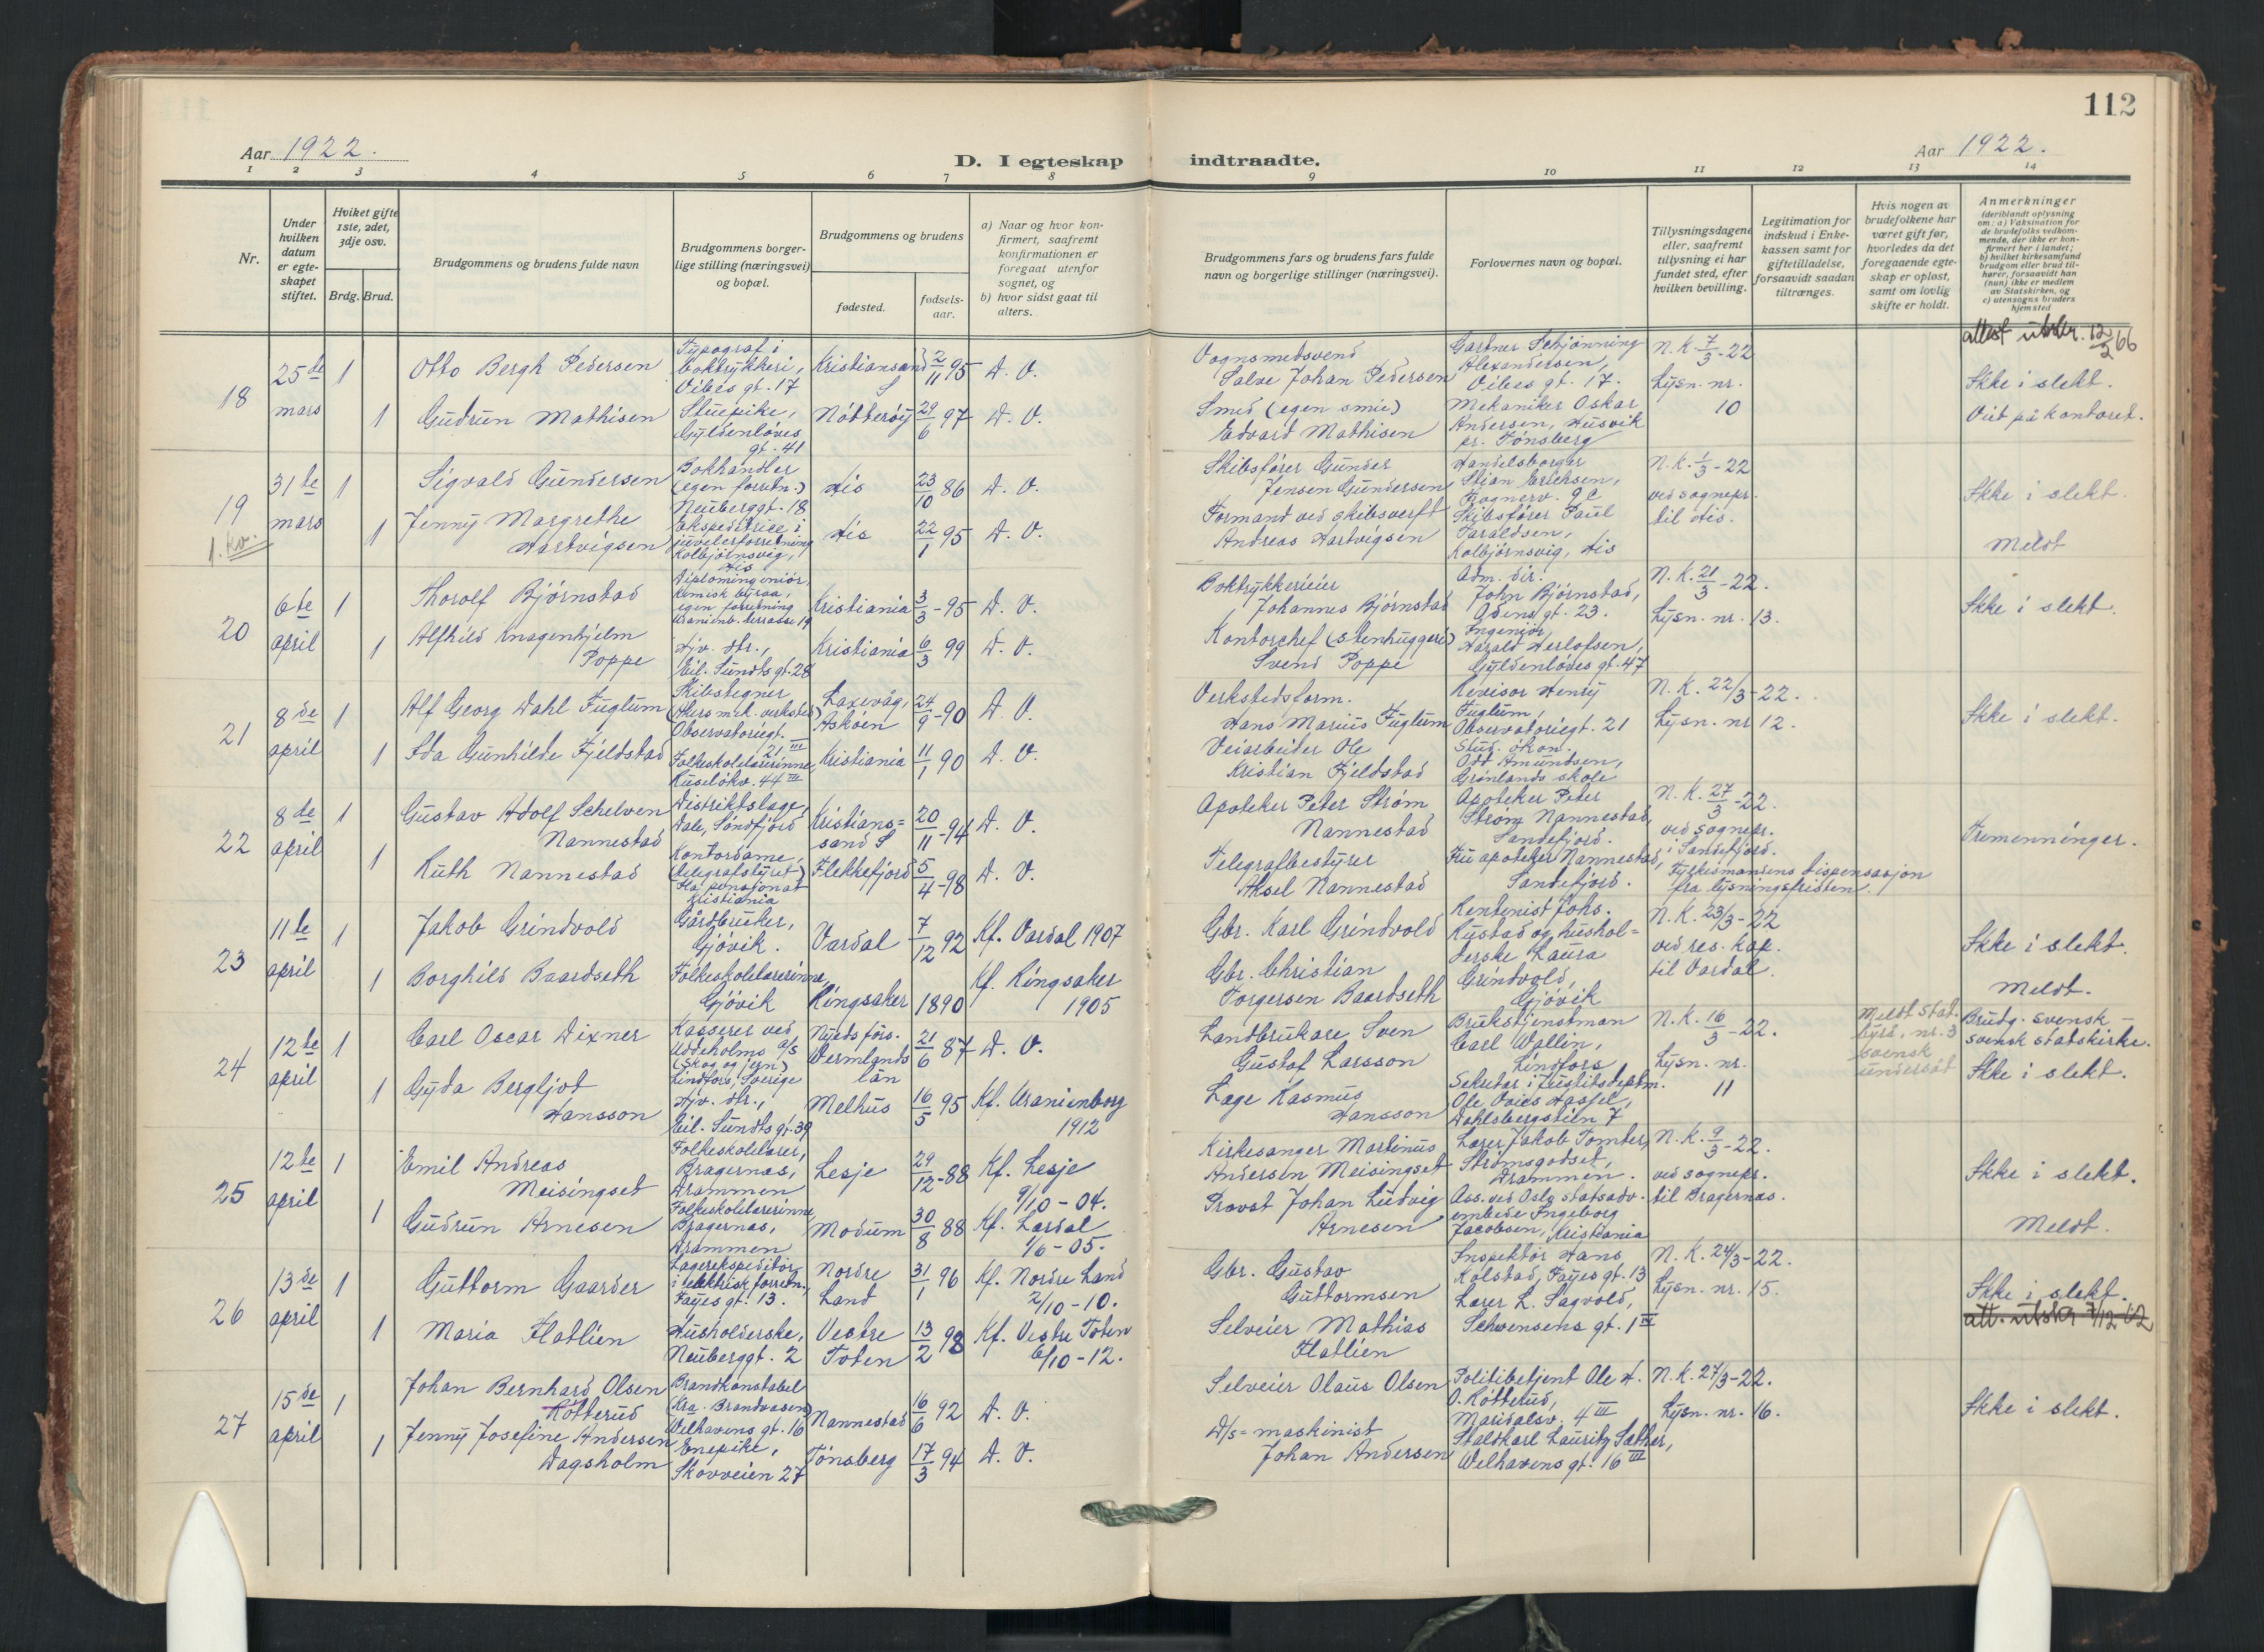 112
Aar 1922.
D. I egteskap indtraadte.
Aar 1922.
1 2 3 4 5 6 7 8 9 10 11 12 13 14
Nr.
Under hvilken datum er egte- skapet stiftet.
Hvilket gifte 1ste, 2det, 3dje osv.
Brdg. Brud.
Brudgommens og brudens fulde navn
Brudgommens borger- lige stilling (næringsvei) og bopæl.
Brudgommens og brudens
fødested.
fødsels- aar.
a) Naar og hvor kon- firmert, saafremt konfirmationen er foregaat utenfor sognet, og
b) hvor sidst gaat til alters.
Brudgommens fars og brudens fars fulde navn og borgerlige stillinger (næringsvei).
Forlovernes navn og bopæl.
Tillysningsdagene eller, saafremt tillysning ei har fundet sted, efter hvilken bevilling.
Legitimation for indskud i Enke- kassen samt for giftetilladelse, forsaavidt saadan tiltrænges.
Hvis nogen av brudefolkene har været gift før, hvorledes da det foregaaende egte- skap er opløst, samt om lovlig skifte er holdt.
Anmerkninger (deriblandt oplysning om: a) Vaksination for de brudefolks vedkom- mende, der ikke er kon- firmert her i landet; b) hvilket kirkesamfund brudgom eller brud til- hører, forsaavidt han (hun) ikke er medlem av Statskirken, og c) utensogns bruders hjemsted
18
25de mars
1
Otto Bergh Pedersen
Typograf i boktrykkeri, Vibes gt. 17
Kristiansand S
2/11 95
D. V.
Vognsmedsvend Salve Johan Pedersen
Gartner Schjønning Alexandersen, Vibes gt. 17.
N. K. 7/3-22
Lysn. nr. 10
attest utskr. 12/2 66
Ikke i slekt.
1
Gudrun Mathisen
Stuepike, Gyldenløves gt. 41
Nøtterøy
29/6 97
D. V.
Smed (egen smie) Edvard Mathisen
Mekaniker Oskar Andersen, Husvik pr. Tønsberg
Viet på kontoret.
19
1. kv.
31te mars
1
Sigvald Gundersen
Bokhandler (egen forretn.) Neuberggt. 18
His
23/10 86
D. V.
Skibsfører Gunder Jensen Gundersen
Handelsborger Stian Erichsen, Frognerv. 9 c
N. K. 1/3-22
ved sognepr. til His.
Ikke i slekt.
1
Jenny Margrethe Hartvigsen
Ekspeditrice i juvelerforretning Kolbjørnsvig, His
His
22/1 95
D. V.
Formand ved skibsverft Andreas Hartvigsen
Skibsfører Paul Taraldsen, Kolbjørnsvig, His
Meldt
20
6te april
1
Thorolf Bjørnstad
Diplomingeniør, kemisk byraa, egen forretning Uranienb. terrasse 19
Kristiania
3/3-95
D. V.
Boktrykkerieier Johannes Bjørnstad
Adm. dir. John Bjørnstad, Odens gt. 23.
N. K. 21/3-22.
Lysn. nr. 13.
Ikke i slekt.
1
Alfhild Knagenhjelm Poppe
Hjv. dtr., Eil. Sundts gt. 28
Kristiania
6/3 99
D. V.
Kontorchef (stenhuggeri) Svend Poppe
Ingeniør Harald Herlofsen, Gyldenløves gt. 47
21
8de april
1
Alf Georg Dahl Fuglum
Skibstegner (Akers mek. verksted) Observatoriegt. 21 III
Laxevåg, Askøen
24/9-90
D. V.
Verkstedsform. Hans Marius Fuglum
Revisor Henry Fuglum, Observatoriegt. 21
N. K. 22/3-22.
Lysn. nr 12.
Ikke i slekt.
1
Ida Gunhilde Fjeldstad
Folkeskolelærerinne, Huseløkv. 44 III
Kristiania
11/1 90
D. V.
Veiarbeider Ole Kristian Fjeldstad
Stud. økon. Odd Amundsen, Grønlands skole
22
8de april
1
Gustav Adolf Schelven Nannestad
Distriktslæge, Dale, Søndfjord
Kristians= sand S
20/11-94
D. V.
Apoteker Peter Strøm Nannestad
Apoteker Peter Strøm Nannestad, Sandefjord.
N. K. 27/3-22.
ved sognepr. i Sandefjord.
Fylkesmandens dispensasjon fra lysningsfristen.
Tremenninger.
1
Ruth Nannestad
Kontordame, (telegrafstyret) pensjonat Kristiania
Flekkefjord
5/4-98
D. V.
Telegrafbestyrer Aksel Nannestad
Fru apoteker Nannestad, Sandefjord.
23
11te april
1
Jakob Grindvold
Gårdbruker, Gjøvik.
Vardal
7/12 92
Kf. Vardal 1907
Gbr. Karl Grindvold
Rentenist Johs. Rustad og hushol= derske Laura Grindvold, Gjøvik
N. K. 23/3-22
ved res. kap. til Vardal.
Ikke i slekt.
1
Borghild Baardseth
Folkeskolelærerinne, Gjøvik
Ringsaker
1890
Kf. Ringsaker 1905
Gbr. Christian Torgersen Baardseth
Meldt.
24
12te april
1
Carl Oscar Dixner
Kasserer ved Uddeholms a/s (skog og jern) Lindfors, Sverige
Nyeds förs. Wermlands län
21/6 87
D. V.
Landbrukare Sven Gustaf Larsson
Brukstjenstman Carl Wallen, Lindfors
N. K. 16/3-22.
Lysn. nr. 11
Meldt Stat. byrå, nr. 3 svensk undersåt
Brudg. svensk - svensk statskirke.
Ikke i slekt.
1
Gyda Bergljot Hansson
Hjv. dtr., Eil. Sundts gt. 39
Melhus
16/5 95
Kf. Uranienborg 1912
Læge Rasmus Hansson
Sekretær i Justitsdeptm. Ole Ovies Hassel, Dahlsbergstien 7
25
12te april
1
Emil Andreas Meisingset
Folkeskolelærer, Bragernæs, Drammen
Lesje
29/12-88
Kf. Lesje 9/10-04.
Kirkesanger Martinus Andersen Meisingset
Lærer Jakob Tomter, Strømsgodset, Drammen.
N. K. 9/3-22.
ved sognepr. til Bragernæs.
Ikke i slekt.
1
Gudrun Arnesen
Folkeskolelærerinne, Bragernæs, Drammen
Modum
30/8 88
Kf. Lærdal 1/6-05.
Provst Johan Ludvig Arnesen
Ass. ved Oslo statsadv. embede Ingeborg Jacobsen, Kristiania
Meldt.
26
13de april
1
Guttorm Gaarder
Lagerekspeditør i elektrisk forretn., Fayes gt. 13.
Nordre Land
31/1 96
Kf. Nordre Land 2/10-10.
Gbr. Gustav Guttormsen
Inspektør Hans Kolstad, Fayes gt. 13
N. K. 24/3-22.
Lysn. nr. 15.
Ikke i slekt.
1
Maria Flatlien
Husholderske, Neuberggt. 2
Vestre Toten
13/2 98
Kf. Vestre Toten 6/10-12.
Selveier Mathias Flatlien
Lærer L. Sagvold, Schwensens gt. 1 IV
att. utskr 7/12 62
27
15de april
1
Johan Bernhard Olsen Røtterud
Brandkonstabel (Kra. Brandvæsen) Welhavens gt. 16
Nannestad
16/6 92
D. V.
Selveier Olaus Olsen
Politibetjent Ole H. O. Røtterud, Maridalsv. 4 III
N. K. 27/3-22.
Lysn. nr. 16.
Ikke i slekt.
1
Jenny Josefine Andersen Dagsholm
Enepike, Skovveien 27
Tønsberg
17/3 94
D. V.
D/s= maskinist Johan Andersen
Staldkarl Lauritz Sæther, Welhavens gt. 16 III